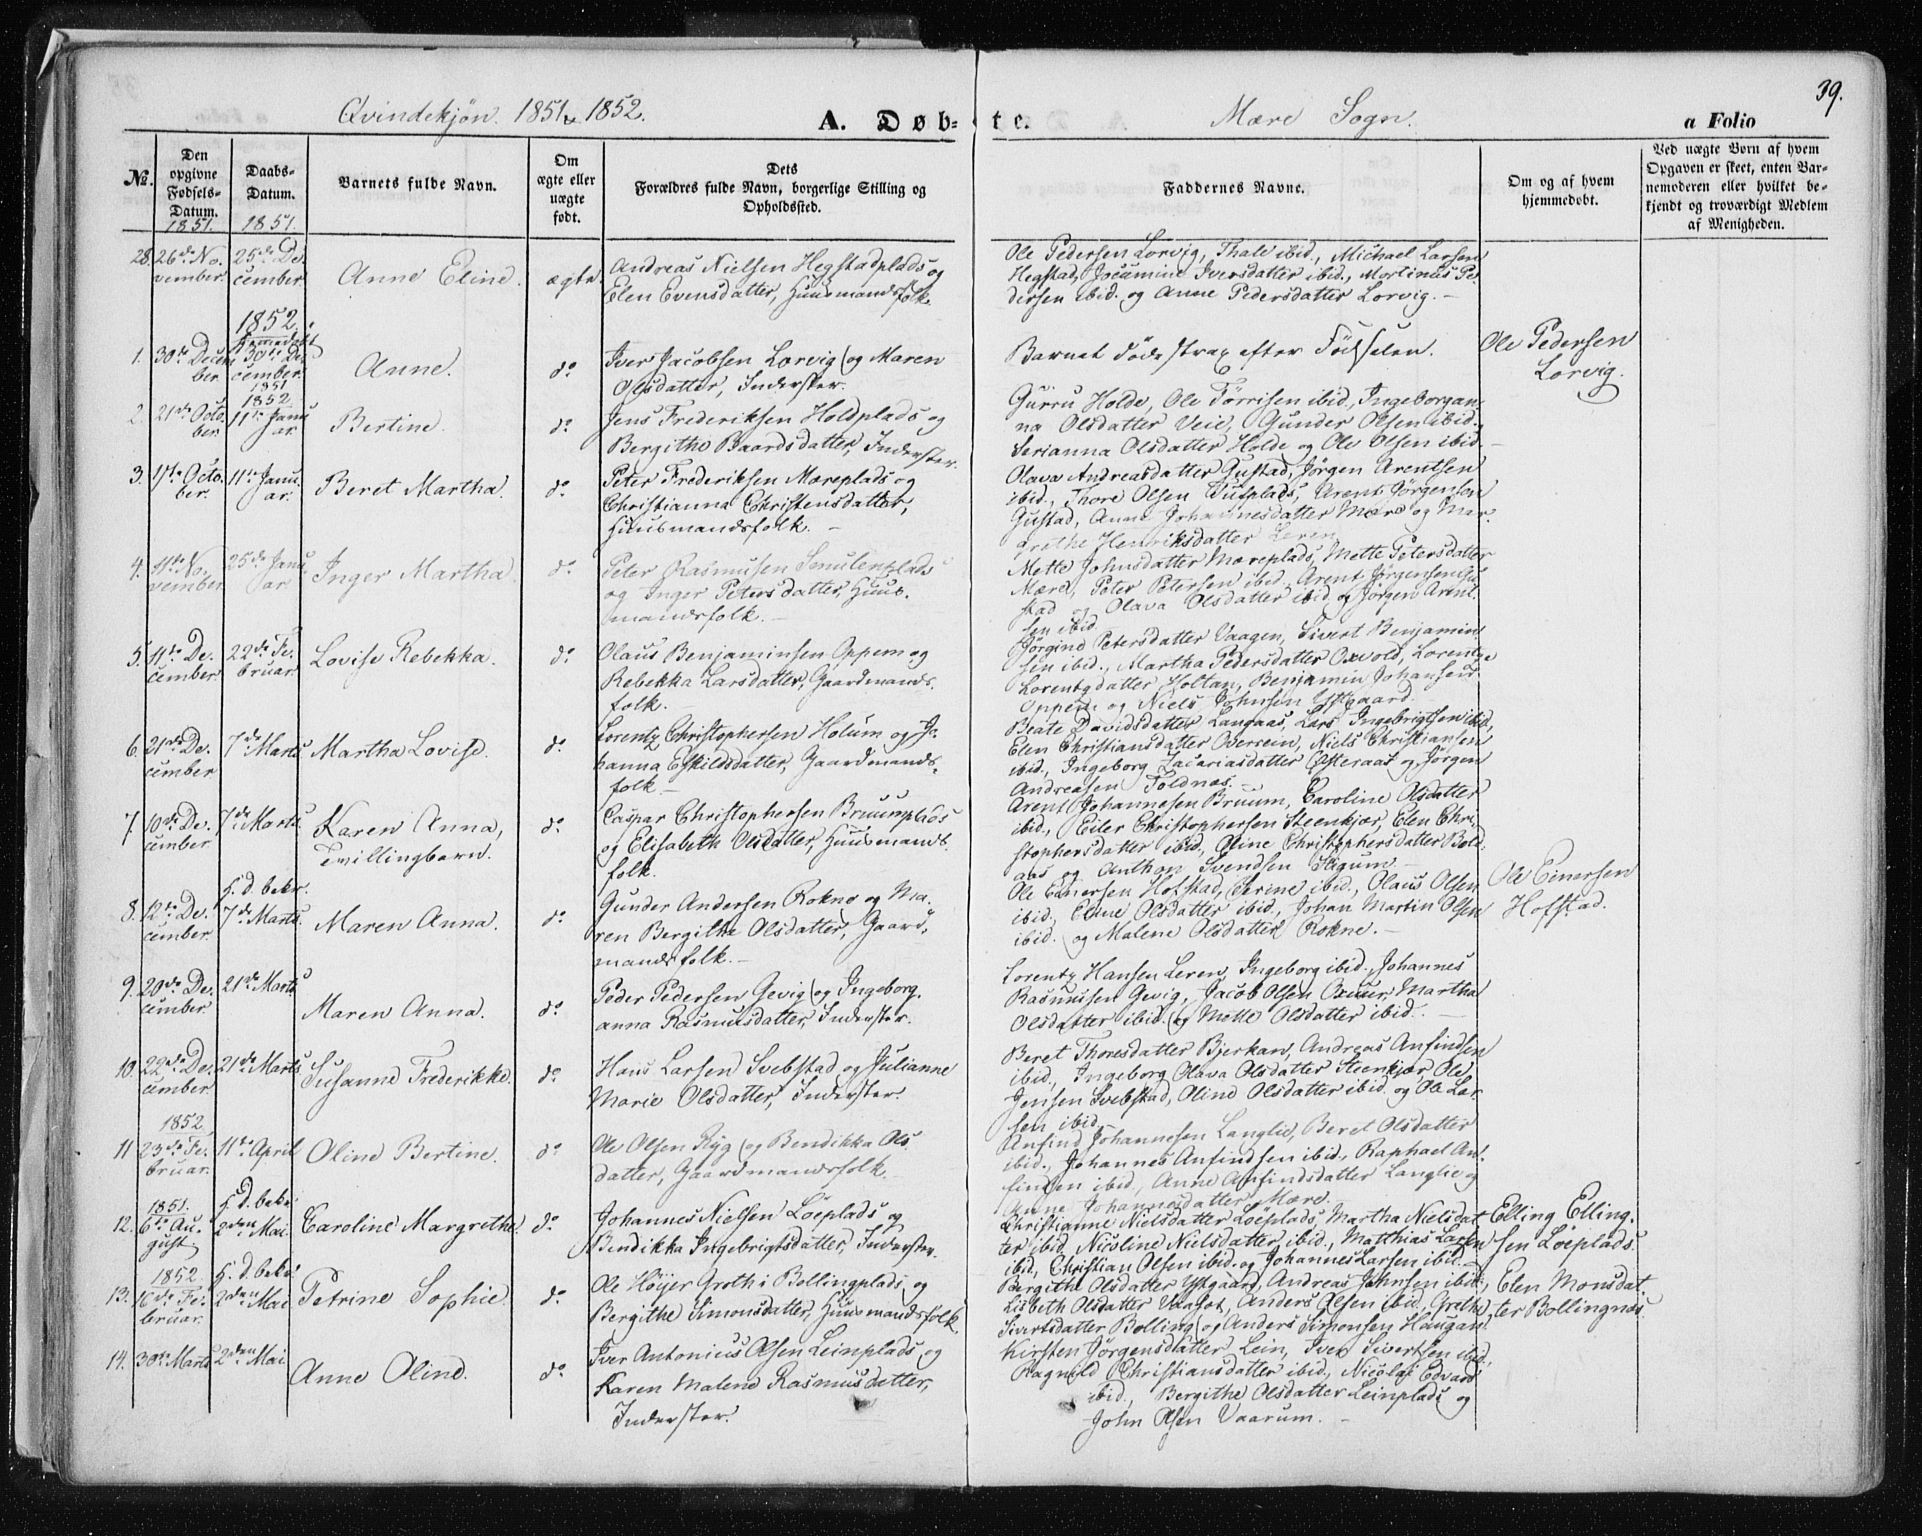 39.
Qvindekjøn. 1851 & 1852.
A. Døbte.
Mære Sogn.
a Folio
№.
Den opgivne Fødsels-Datum.
Daabs-Datum.
Barnets fulde Navn.
Om ægte eller uægte født.
Dets Forældres fulde Navn, borgerlige Stilling og Opholdssted.
Faddernes Navne.
Om og af hvem hjemmedøbt.
Ved uægte Børn af hvem Opgaven er skeet, enten Barnemoderen eller hvilket bekjendt og troværdigt Medlem af Menigheden.
1851. 1851.
28. 26de No- 25de De- Anne Eline. ægte Andreas Nielsen Hegstadplads og
vember. cember. Elen Evensdatter, Huusmandsfolk.
Ole Pedersen Lorvig, Thale ibid., Michael Larsen
Hegstad, Jocumine Iversdatter ibid., Mortinus Pe-
dersen ibid. og Anne Pedersdatter Lorvig. –
1852.
Hjemmedøbt
1. 30te Decem- 30te De- Anne. do Iver Jacobsen Lorvig og Maren
ber. cember. 1851 Olsdatter, Inderster.
Barnet døde strax efter Fødselen.
Ole Pedersen
Lorvig.
1852
2. 21de Octo- 11te Janu- Bertine. do Jens Frederiksen Holdplads og
ber. ar. Bergithe Baardsdatter, Inderster.
Gurru Holde, Ole Torrisen ibid., Ingeborgan-
na Olsdatter Veie, Gunder Olsen ibid.,
Serianna Olsdatter Holde og Ole Olsen ibid. –
3. 1ste Octo- 11te Janu- Beret Martha. do Peter Frederiksen Mæreplads og
ber. ar. Christianna Christensdatter,
Huusmandsfolk. –
Olava Andreasdatter Gustad, Jørgen Arentsen
ibid., Thore Olsen Tusplads, Arent Jørgensen
Gustad, Anne Johannesdatter Mære og Mar-
grethe Henriksdatter Leren.
4. 11te No- 25de Janu- Inger Martha. do Peter Rasmusen Smulenplads
vember ar og Inger Petersdatter, Huus-
mandsfolk. –
Mette Johnsdatter Mæreplads, Mette Petersdatter
Mære, Peter Petersen ibid., Arent Jørgensen Gu-
stad og Olava Olsdatter ibid og Jørgen Arent-
sen ibid.
5. 11te De- 22de Fe- Lovise Rebekka. do Olaus Benjaminsen Oppem og
cember bruar. Rebekka Larsdatter, Gaardmands-
folk. –
Jørgine Petersdatter Vaagen, Sivert Benjamin-
sen ibid., Martha Pedersdatter Oxvold, Lorentze
Lorentzdatter Holtan, Benjamin Johansen
Oppem og Niels Johnsen Østgaard.
6. 21de De- 7de Marts Martha Lovise. do Lorentz Christophersen Holum og Jo-
cember hanna Eskildsdatter, Gaardmands-
folk –
Beate Davidsdatter Langaas, Lars Ingebrigtsen ibid,
Elen Christiansdatter Oversein, Niels Christiansen
ibid., Ingeborg Zacariasdatter Østeraat og Jørgen
Andreasen Foldnæs.
7. 10de De- 7de Marts. Karen Anna, do Caspar Christophersen Bruumplads
cember. Tvillingbarn. og Elisabeth Olsdatter, Huusmands-
folk.
Arent Johannesen Bruum, Caroline Olsdatter
ibid., Eiler Christophersen Steenkjær, Elen Chri-
stophersdatter ibid, Oline Christophersdatter Bold-
aas og Anthon Svendsen Hegum –
H. d. bekr.
8. 12te De- 7de Marts. Maren Anna. do Gunder Andersen Rokne og Ma-
cember. ren Bergitha Olsdatter, Gaard-
mandsfolk. –
Ole Einersen Hofstad, Serine ibid., Olaus Olsen
ibid. Eline Olsdatter ibid., Johan Martin Olsen
ibid. og Malene Olsdatter Rokne. –
Ole Einersen
Hofstad.
9. 20de De- 21de Marts Maren Anna. do Peder Pedersen Gevig og Ingeborg-
cember. anna Rasmusdatter, Inderster.
Lorentz Hansen Leren, Ingeborg ibid., Johannes
Rasmusen Gevig, Jacob Olsen Oxaas, Martha
Olsdatter ibid. og Mette Olsdatter ibid. –
10. 22de De- 21de Marts Susanne Frederikke. do Hans Larsen Svebstad og Julianne
cember. Marie Olsdatter, Inderster.
Beret Thoresdatter Bjerkan, Andreas Anfindsen
ibid., Ingeborg Olava Olsdatter Steenkjær, Ole
Jensen Svebstad, Oline Olsdatter ibid. og Ole Lar-
sen ibid.
1852.
11 23de Fe- 11te April Oline Bertine. do Ole Olsen Ryg og Bendikka Ols-
bruar. datter, Gaardmandsfolk.
Anfind Johannesen Langlie, Beret Olsdatter
ibid., Johannes Anfindsen ibid., Raphael An-
findsen ibid., Anne Anfindsdatter Langlie og
Anne Johannesdatter Mære.
1851. H. d. bekr.
12. 6te Au- 2den Mai. Caroline Margrethe. do Johannes Nielsen Løeplads og
gust Bendikka Ingebrigtsdatter, Inderster.
Christianne Nielsdatter Løeplads, Martha Nielsdat-
ter ibid, Nicoline Nielsdatter ibid., Matthias Larsen
ibid, Christian Olsen ibid. og Johannes Larsen ibid. –
Elling Elling-
sen Løeplads.
1852 H. d. bekr.
13. 16de Fe- 2den Mai Petrine Sophie. do Ole Høyer Groth i Bollingplads og
bruar. Bergithe Simonsdatter, Huusmandsfolk.
Bergithe Olsdatter Ystgaard, Andreas Johnsen ibid.,
Lisbeth Olsdatter Vaaset, Anders Olsen ibid., Grethe
Sivertsdatter Bolling og Anders Simonsen Haugan
Elen Monsdat-
ter Bollingnæs
14. 30te Marts 2den Mai Anne Oline. do Iver Antonius Olsen Leinplads og
Karen Malene Rasmusdatter,
Inderster.
Kirsten Jørgensdatter Lein, Iver Sivertsen ibid,
Ragnild Christiansdatter ibid., Nicolai Edvard
ibid., Bergithe Olsdatter Leinplads og
John Olsen Vaarum. –